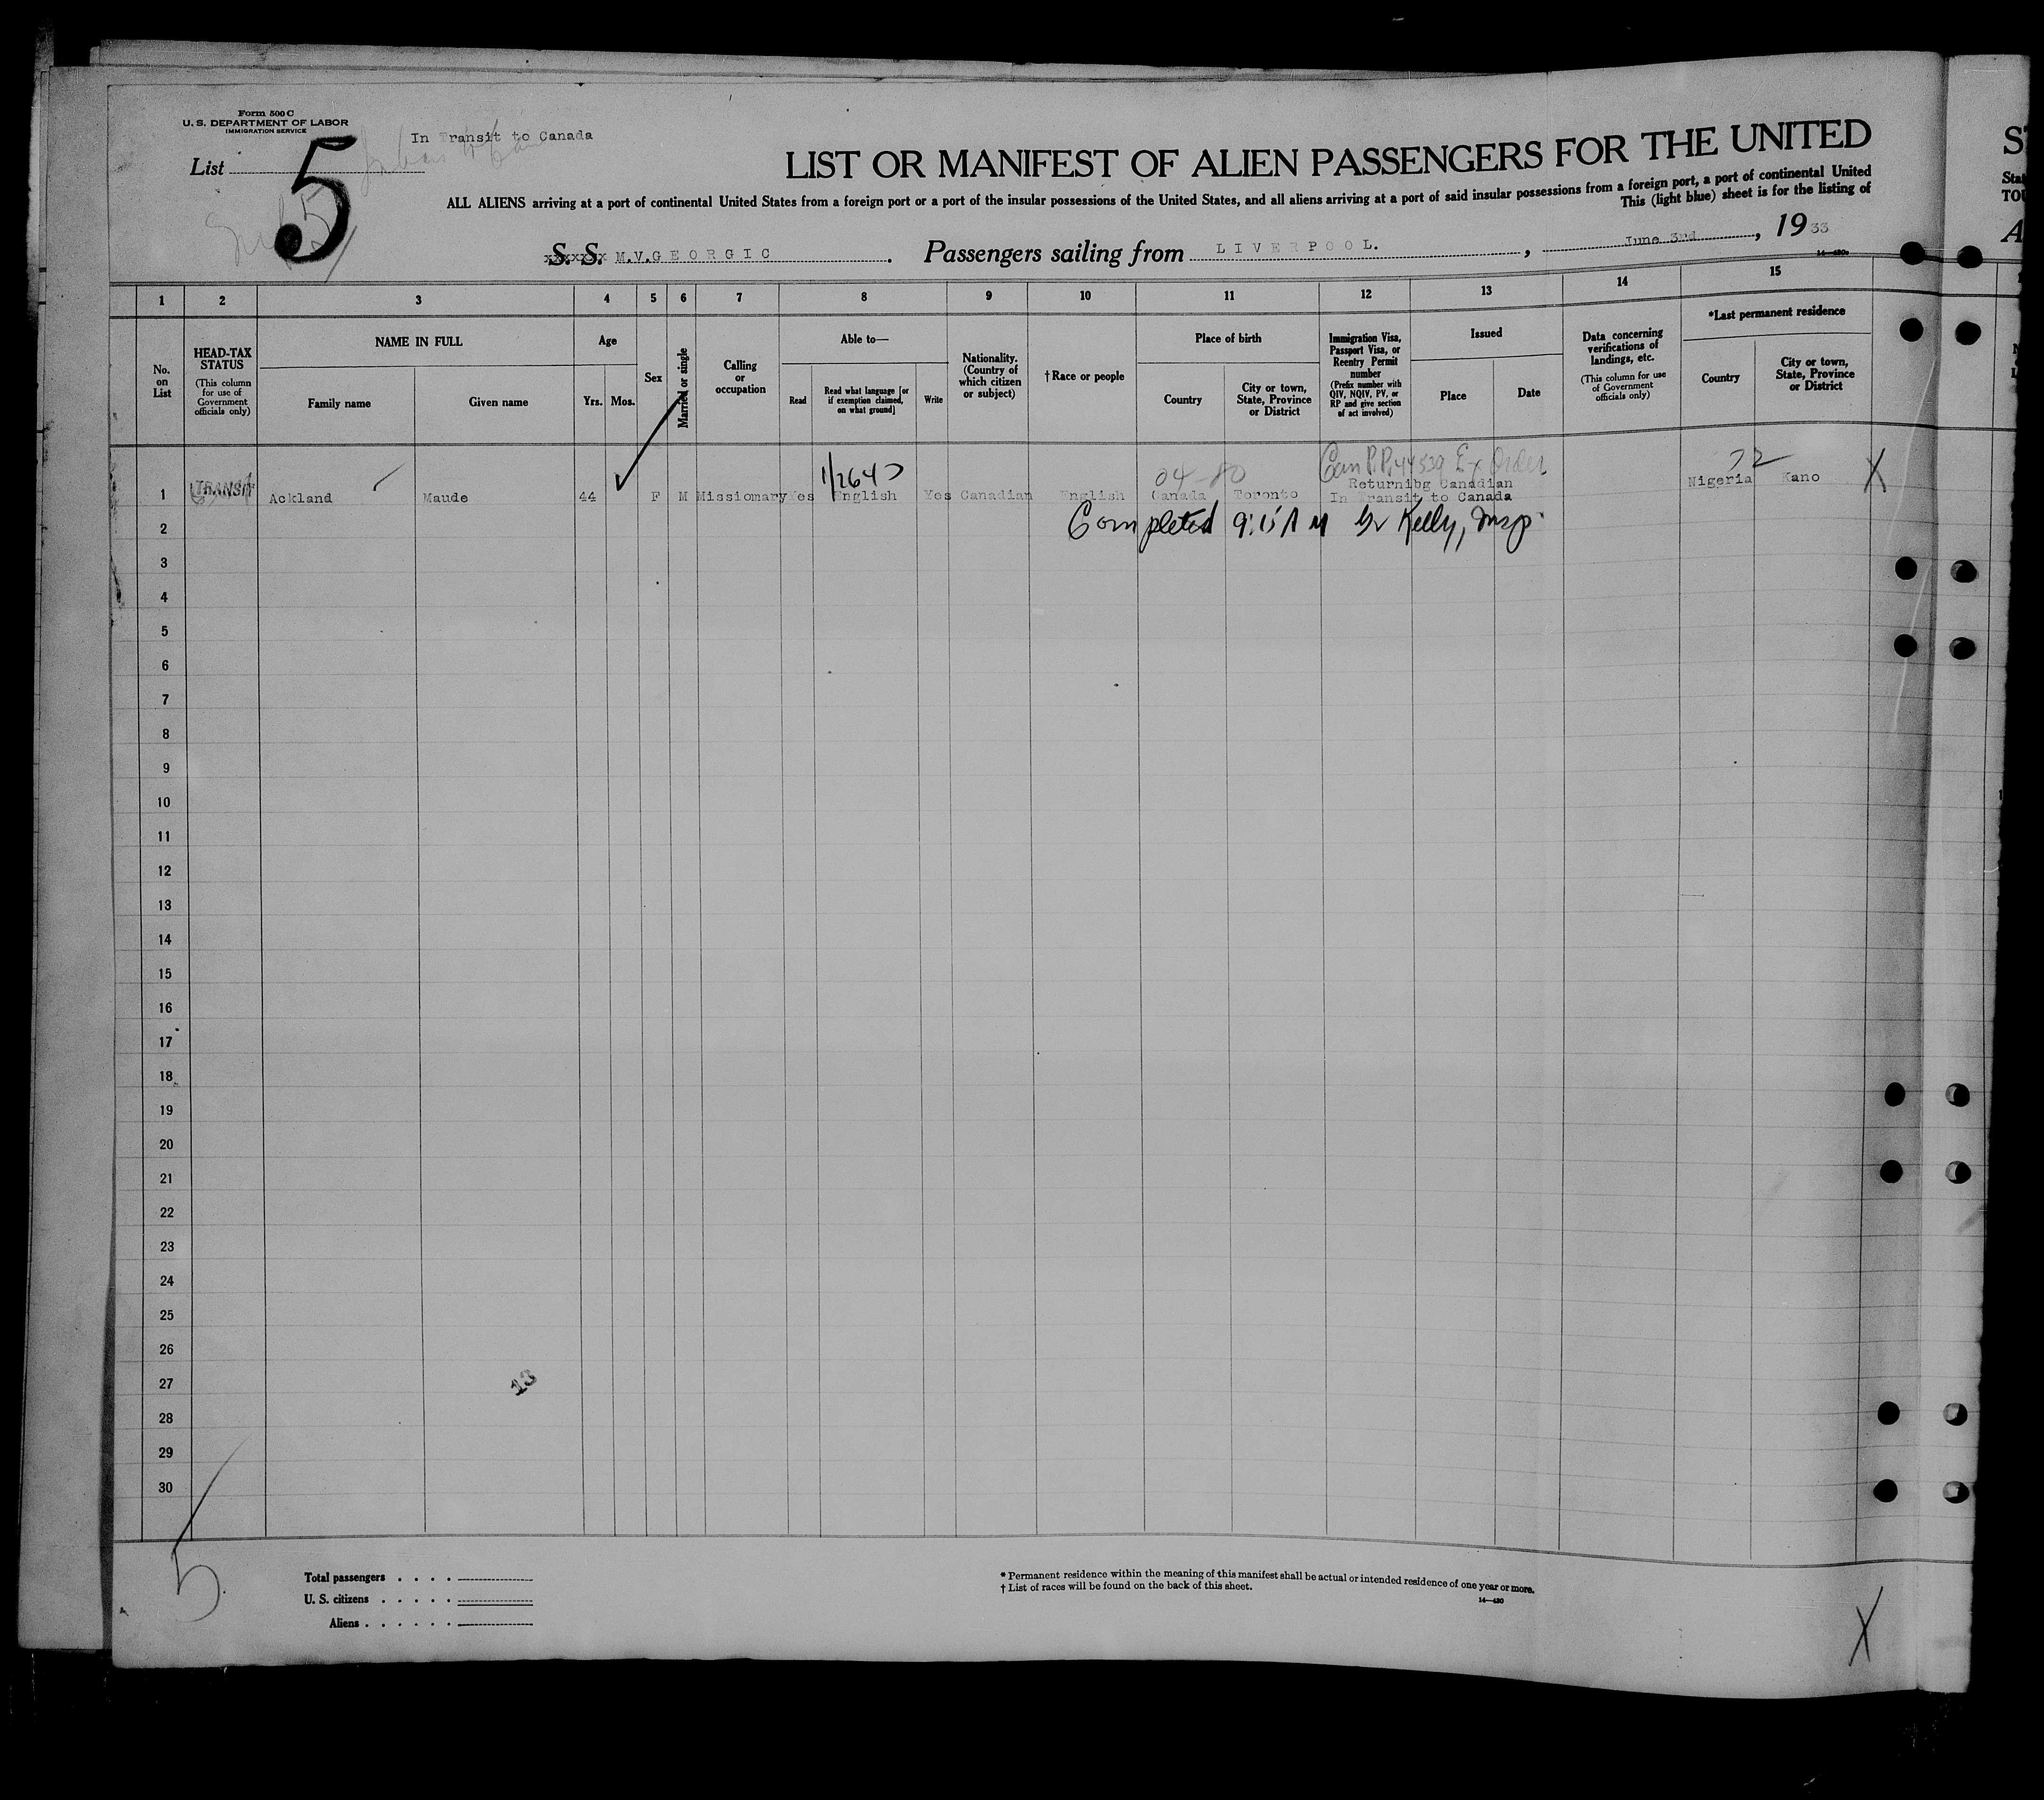 Form 500 C
U. S. DEPARTMENT OF LABOR
IMMIGRATION SERVICE
In Transit to Canada
List
5
LIST OR MANIFEST OF ALIEN PASSENGERS FOR THE UNITED
ALL ALIENS arriving at a port of continental United States from a foreign port or a port of the insular possessions of the United States, and all aliens arriving at a port of said insular possessions from a foreign port, a port of continental United
This (light blue) sheet is for the listing of
S. S. xxxxxxx M.V.GEORGIC. Passengers sailing from LIVERPOOL., June 3rd, 1933
14—430
1 2 3 4 5 6 7 8 9 10 11 12 13 14 15
No. on List
HEAD-TAX STATUS
(This column for use of Government officials only)
NAME IN FULL
Family name Given name
Age
Yrs. Mos.
Sex
Married or single
Calling or occupation
Able to—
Read
Read what language [or if exemption claimed, on what ground]
Write
Nationality. (Country of which citizen or subject)
†Race or people
Place of birth
Country
City or town, State, Province or District
Immigration Visa, Passport Visa, or Reentry Permit number
(Prefix number with QIV, NQIV, PV, or RP and give section of act involved)
Issued
Place Date
Data concerning verifications of landings, etc.
(This column for use of Government officials only)
*Last permanent residence
Country
City or town, State, Province or District
04-80 Can P.P. 44539 Ex Order
Returnibg Canadian
1 TRANSIT Ackland Maude 44 F M Missiomary Yes English Yes Canadian English Canada Toronto In Transit to Canada Nigeria Kano X
2 Completed 9:15 AM Kelly, Insp.
3
4
5
6
7
8
9
10
11
12
13
14
15
16
17
18
19
20
21
22
23
24
25
26
27
13
28
29
30
5
Total passengers . . . .
U. S. citizens . . . . .
Aliens . . . . . .
* Permanent residence within the meaning of this manifest shall be actual or intended residence of one year or more.
† List of races will be found on the back of this sheet.
14—430
X